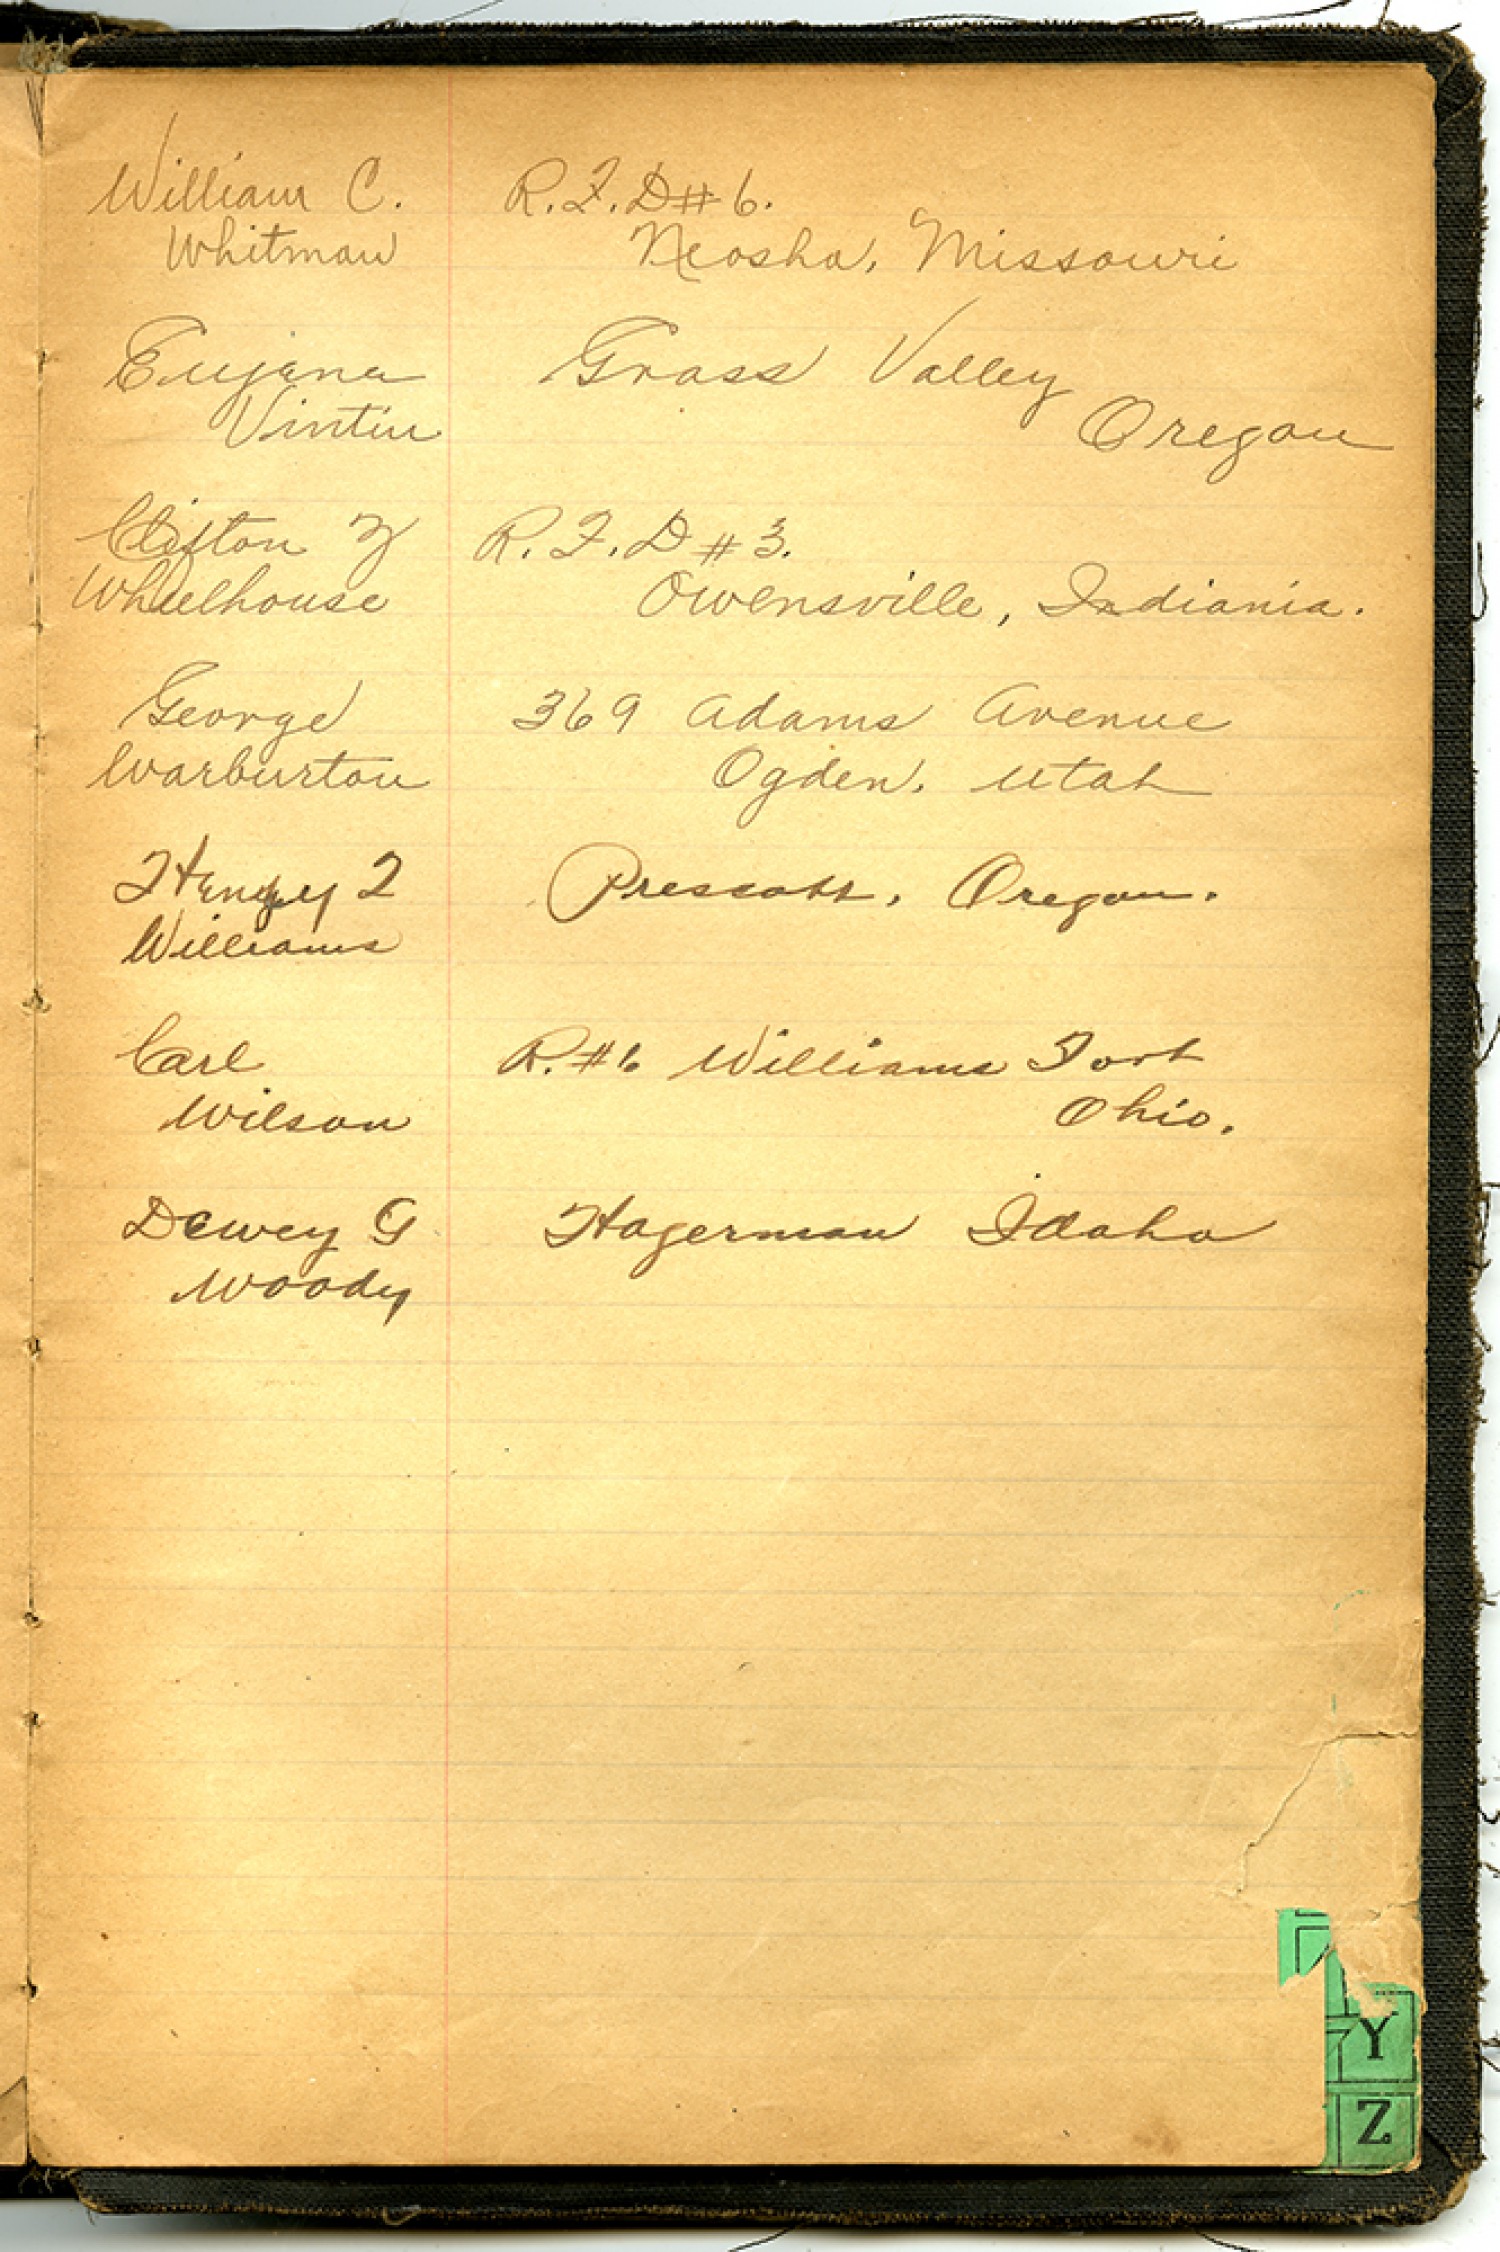 William C. R.F.D#6.
Whitman Neosha, Missouri
Eujena Grass Valley
Vintin Oregon
Clifton F R.F.D #3.
Wheelhouse Owensville, Indiania.
George 369 Adams Avenue
Warburton Ogden, Utah
Henry T Prescott, Oregon.
Williams
Carl R.#6 Williams Fort
Wilson Ohio.
Dewey G Hagerman Idaho
Woody
Y
Z